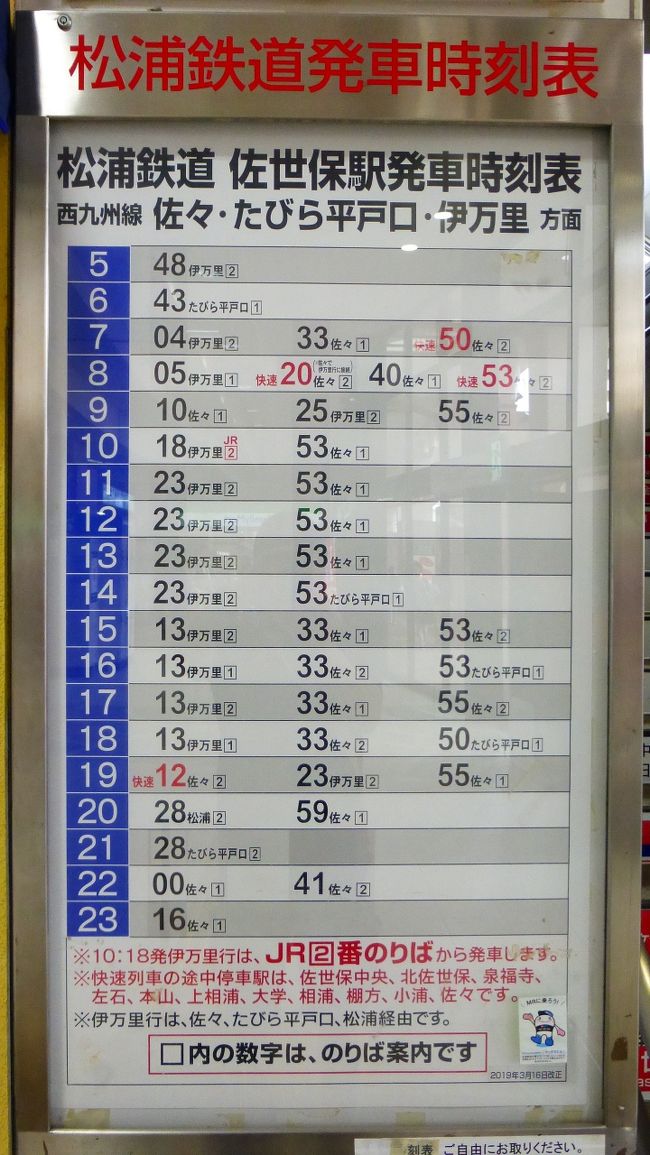 松浦鉄道発車時刻表
松浦鉄道 佐世保駅発車時刻表
西九州線 佐々・たびら平戸口・伊万里 方面
5 48伊万里2
6 43たびら平戸口1
7 04伊万里2 33佐々1 快速50佐々2
8 05伊万里1 快速20佐々2(佐々で伊万里行に接続) 40佐々1 快速53佐々2
9 10佐々1 25伊万里2 55佐々2
10 18伊万里JR2 53佐々1
11 23伊万里2 53佐々1
12 23伊万里2 53佐々1
13 23伊万里2 53佐々1
14 23伊万里2 53たびら平戸口1
15 13伊万里2 33佐々1 53佐々2
16 13伊万里1 33佐々2 53たびら平戸口1
17 13伊万里2 33佐々1 55佐々2
18 13伊万里1 33佐々2 50たびら平戸口1
19 快速12佐々2 23伊万里2 55佐々1
20 28松浦2 59佐々1
21 28たびら平戸口2
22 00佐々1 41佐々2
23 16佐々1
※10:18発伊万里行は、JR2番のりばから発車します。
※快速列車の途中停車駅は、佐世保中央、北佐世保、泉福寺、
左石、本山、上相浦、大学、相浦、棚方、小浦、佐々です。
※伊万里行は、佐々、たびら平戸口、松浦経由です。
MRに乗ろう!
□内の数字は、のりば案内です
2019年3月16日改正
刻表 ご自由にお取りください。